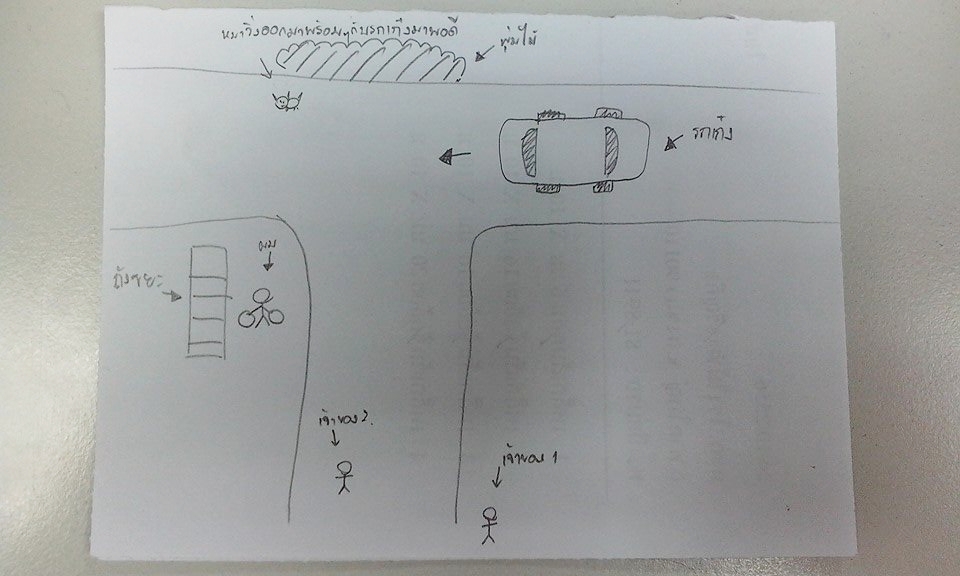 หมาวิ่งออกมาพร้อมๆกับรถเก๋งมาพอดี
พุ่มไม้
รถเก๋ง
ผม
ถังขยะ
เจ้าของ 2.
เจ้าของ 1